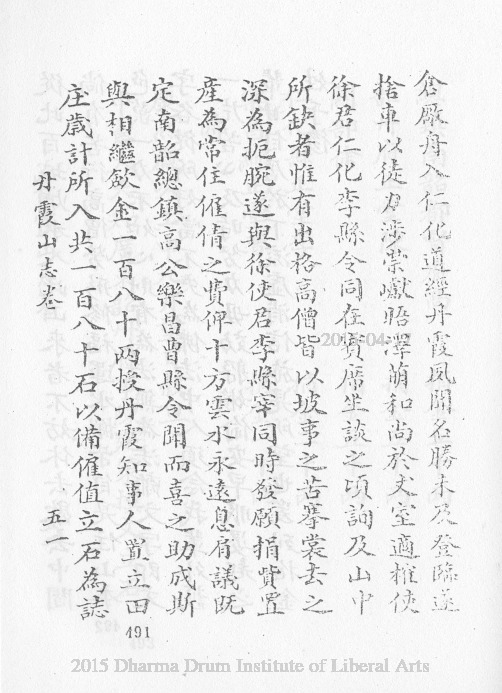 倉廒舟入仁化道經丹霞風聞名勝未及登臨遂
捨車以徒力涉崇巘晤澤萌和尚於丈室適榷使
徐君仁化李縣令同在賓席坐談之頃詢及山中
所缺者惟有出格高僧皆以坡事之苦搴裳去之
深為扼腕遂與徐使君李縣宰同時發願捐貲置
產為常住僱脩之費俾十方雲水永遠息肩議既
定南韶總鎮高公樂昌曹縣令聞而喜之助成斯
與相繼歛金一百八十兩授丹霞知事人置立田
庄歲計所入共一百八十石以備僱值立石為誌
丹霞山志卷 五一
491
2015 Dharma Drum Institute of Liberal Arts